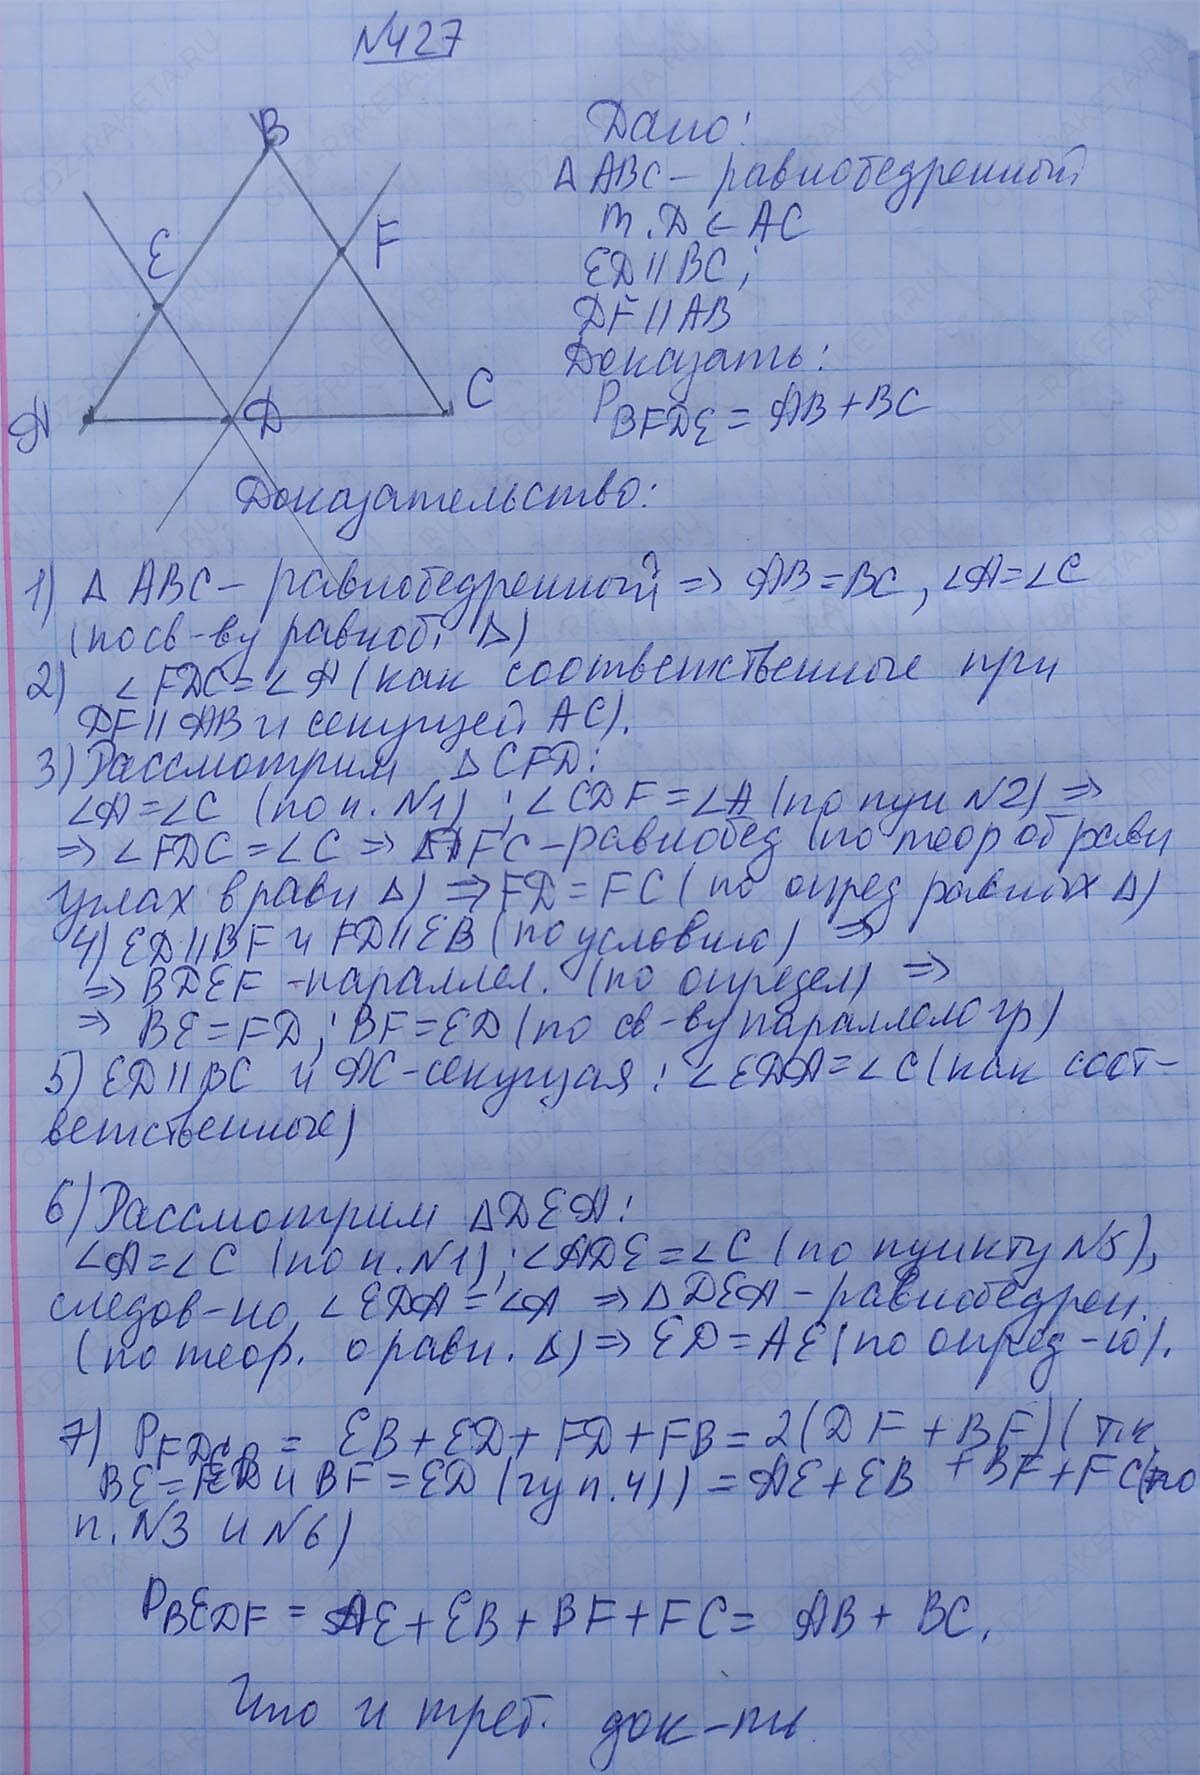 №427
B
E
F
A
D
C
Дано:
△ ABC – равнобедренный
т. D ∈ AC
ED || BC;
DF || AB
Доказать:
P BFDE = AB + BC
Доказательство:
1) △ ABC – равнобедренный => AB = BC, ∠A = ∠C
(по св-ву равноб. △)
2) ∠FDC = ∠A (как соответственные при
DF || AB и секущей AC).
3) Рассмотрим △ CFD:
∠A = ∠C (по п. №1) ; ∠CDF = ∠A (по пун №2) =>
=> ∠FDC = ∠C => △DFC – равнобед (по теор об равн
углах в равн △) => FD = FC (по опред равных △)
4) ED || BF и FD || EB (по условию) =>
=> BDEF – параллел. (по определ) =>
=> BE = FD ; BF = ED (по св-ву параллелогр)
5) ED || BC и AC – секущая : ∠EDA = ∠C (как соот-
ветственные)
6) Рассмотрим △DEA:
∠A = ∠C (по п. №1) ; ∠ADE = ∠C (по пункту №5),
следов-но, ∠EDA = ∠A => △DEA – равнобедрен.
(по теор. о равн. △) => ED = AE (по опред-ю).
7) P = EB + ED + FD + FB = 2(DF + BF) (т.к.
BE = и BF = ED (из п. 4)) = AE + EB + BF + FC (по
п. №3 и №6)
P BEDF = AE + EB + BF + FC = AB + BC.
Что и треб. док-ть.